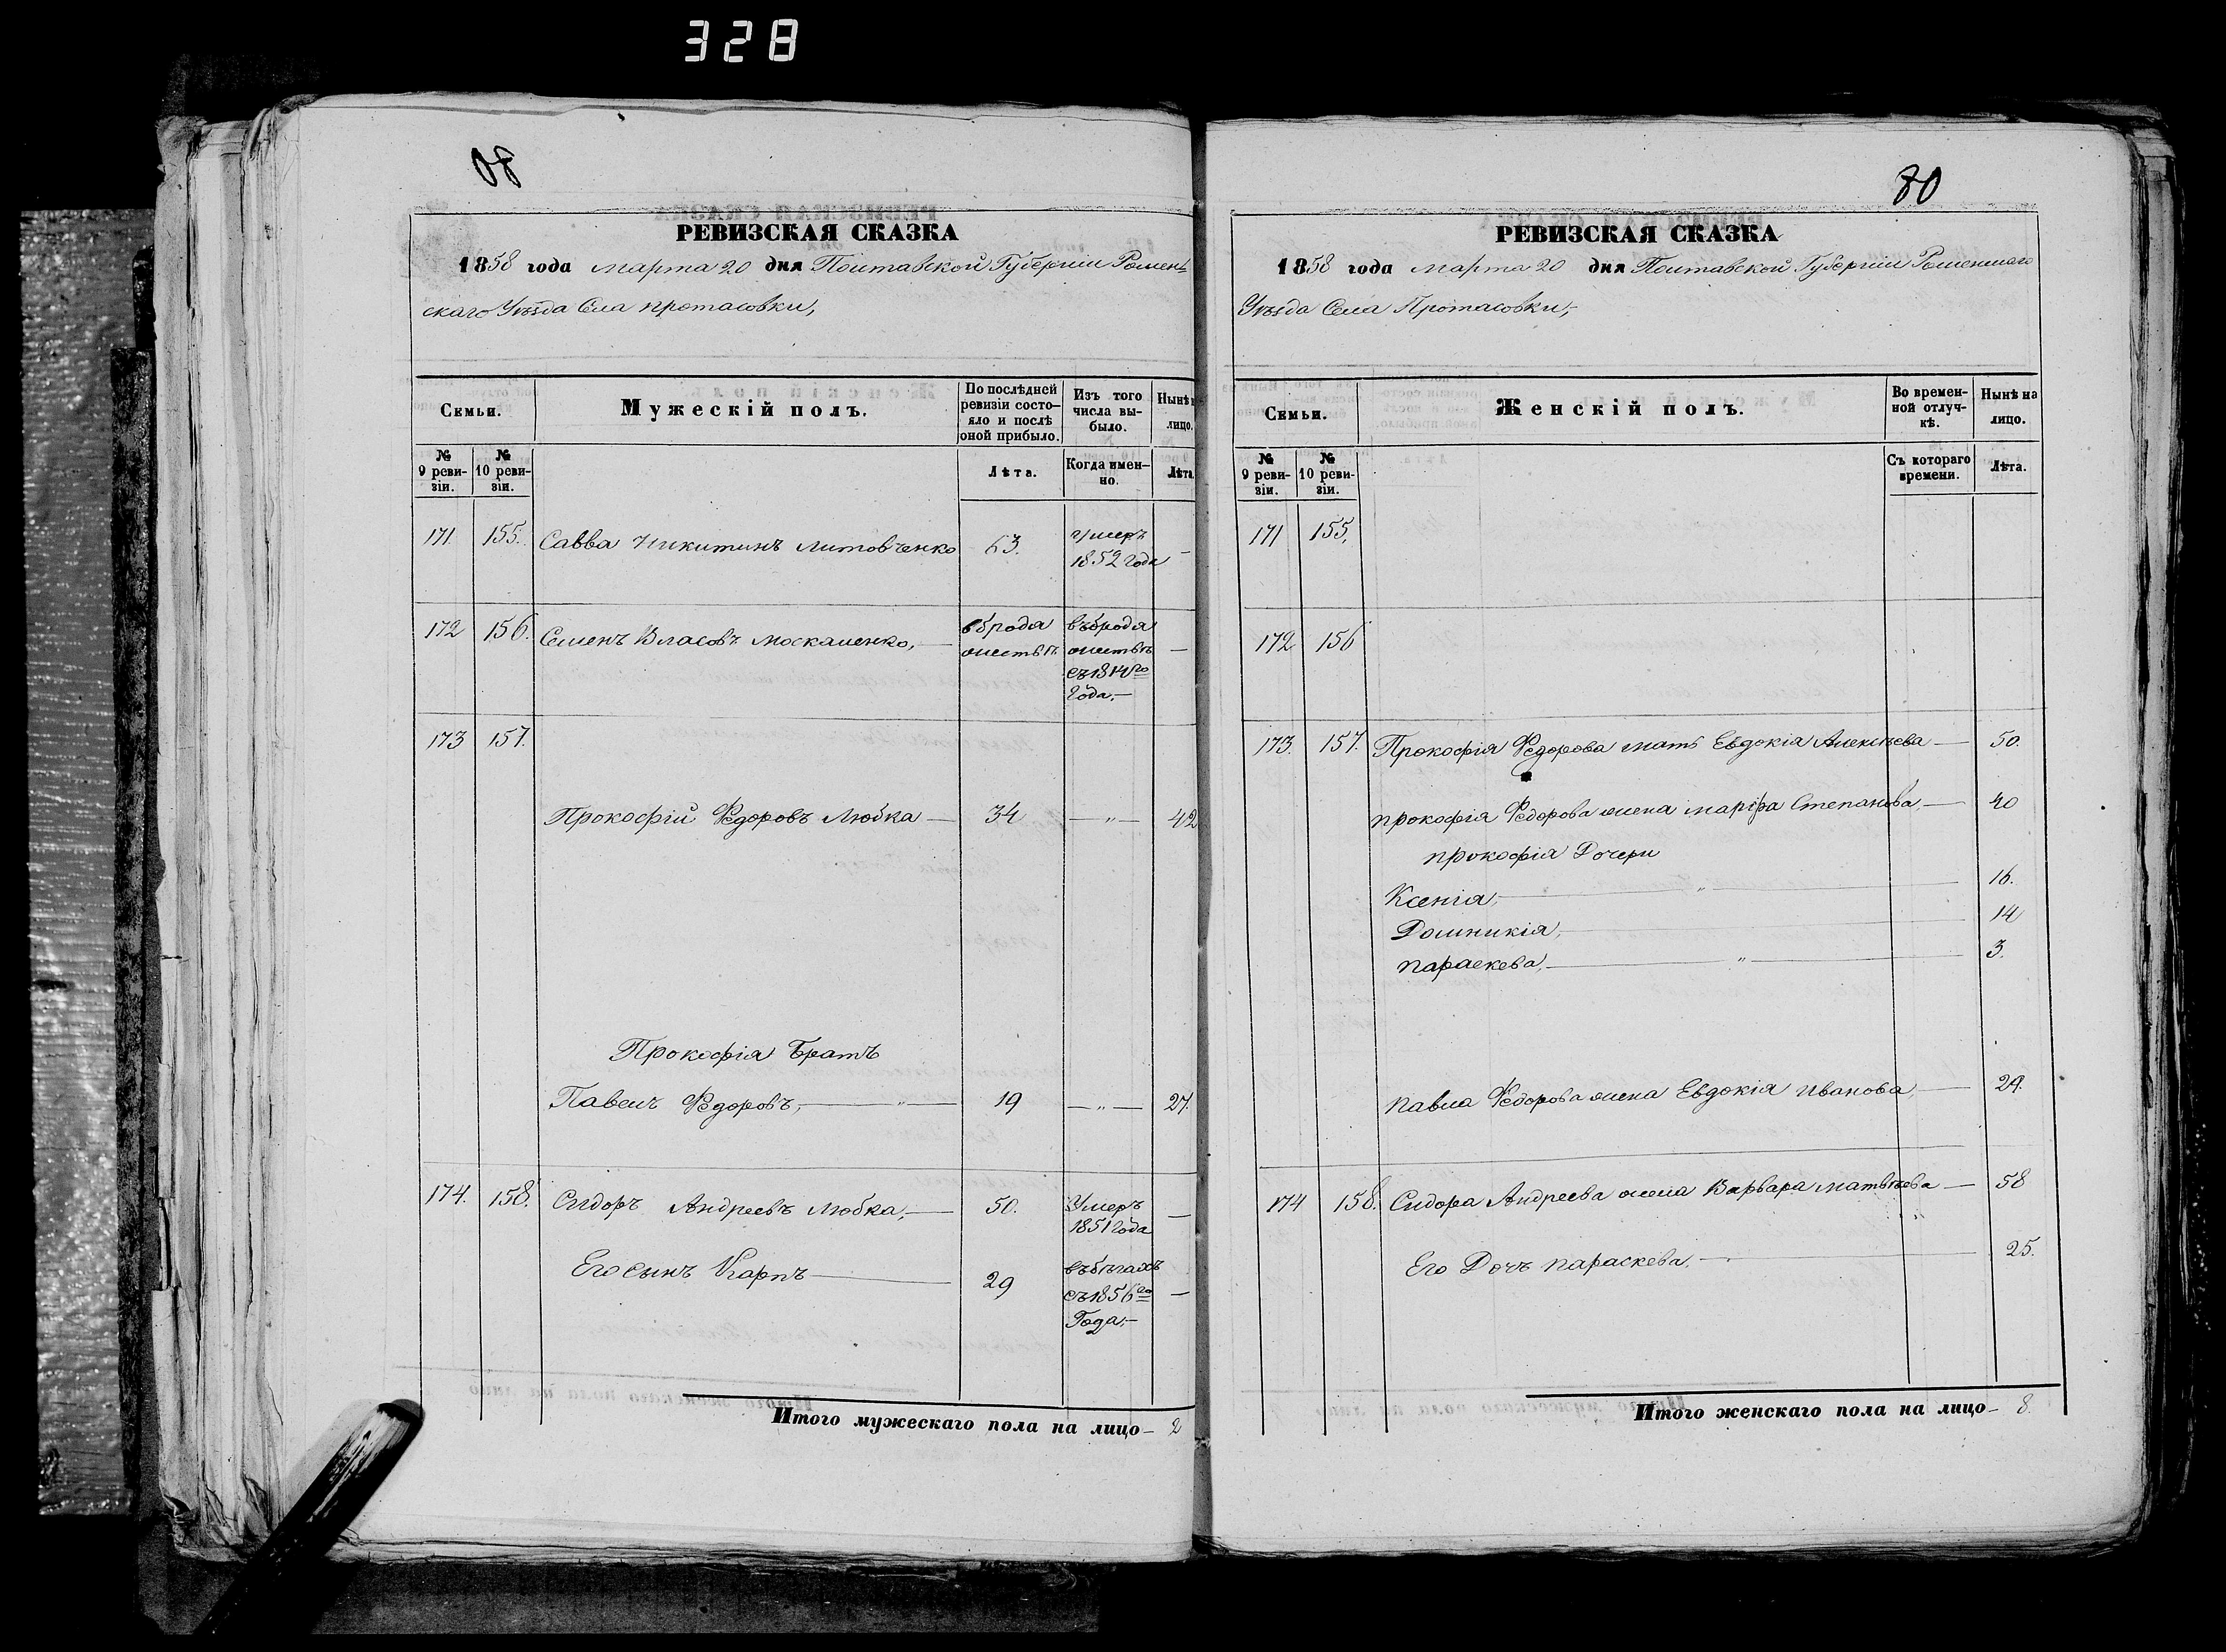 328
80
РЕВИЗСКАЯ СКАЗКА
1858 года марта 20 дня Полтавской Губерніи Ромен-
скаго Уѣзда Села протасовки,
Семьи.
Мужескій полъ.
По послѣдней ревизіи состо-яло и послѣ оной прибыло.
Изъ того числа вы-было.
Нынѣ
лицо.
№ 9 реви-зіи.
№ 10 реви-зіи.
Лѣта.
Когда имен-но.
Лѣта
171. 155. Савва Никитинъ Литовченко 63. умеръ 1852 года —
172 156. Семенъ Власовъ Москаленко, — съ 1814го года. — —
173 157.
Прокофій Федоровъ Любка — 34 — „ — 42
Прокофія Братъ
Павелъ Федоровъ, — „ — 19 — „ — 27.
174. 158. Сидоръ Андреевъ Любка, — 50. Умеръ 1851 года —
Его сынъ Карпъ — 29 въ бѣгахъ съ 1856го Года. — —
Итого мужескаго пола на лицо — 2
80
РЕВИЗСКАЯ СКАЗКА
1858 года марта 20 дня Полтавской Губерніи Роменскаго
Уѣзда Села Протасовки,
Семьи.
Женскій полъ.
Во времен-ной отлуч-кѣ.
Нынѣ на лицо.
№ 9 реви-зіи.
№ 10 реви-зіи.
Съ котораго времени.
Лѣта.
171 155,
172 156
173. 157. Прокофія Федорова мать Евдокія Алексѣева — 50.
прокофія Федорова жена марфа Степанова, — 40
прокофія Дочери
Ксенія, — „ — 16.
Домникія, — 14
параскева, — „ — 3.
павла Федорова жена Евдокія Иванова, — 29.
174 158. Сидора Андреева жена Варвара матвѣева — 58
Его Дочь параскева. — 25.
Итого женскаго пола на лицо — 8.